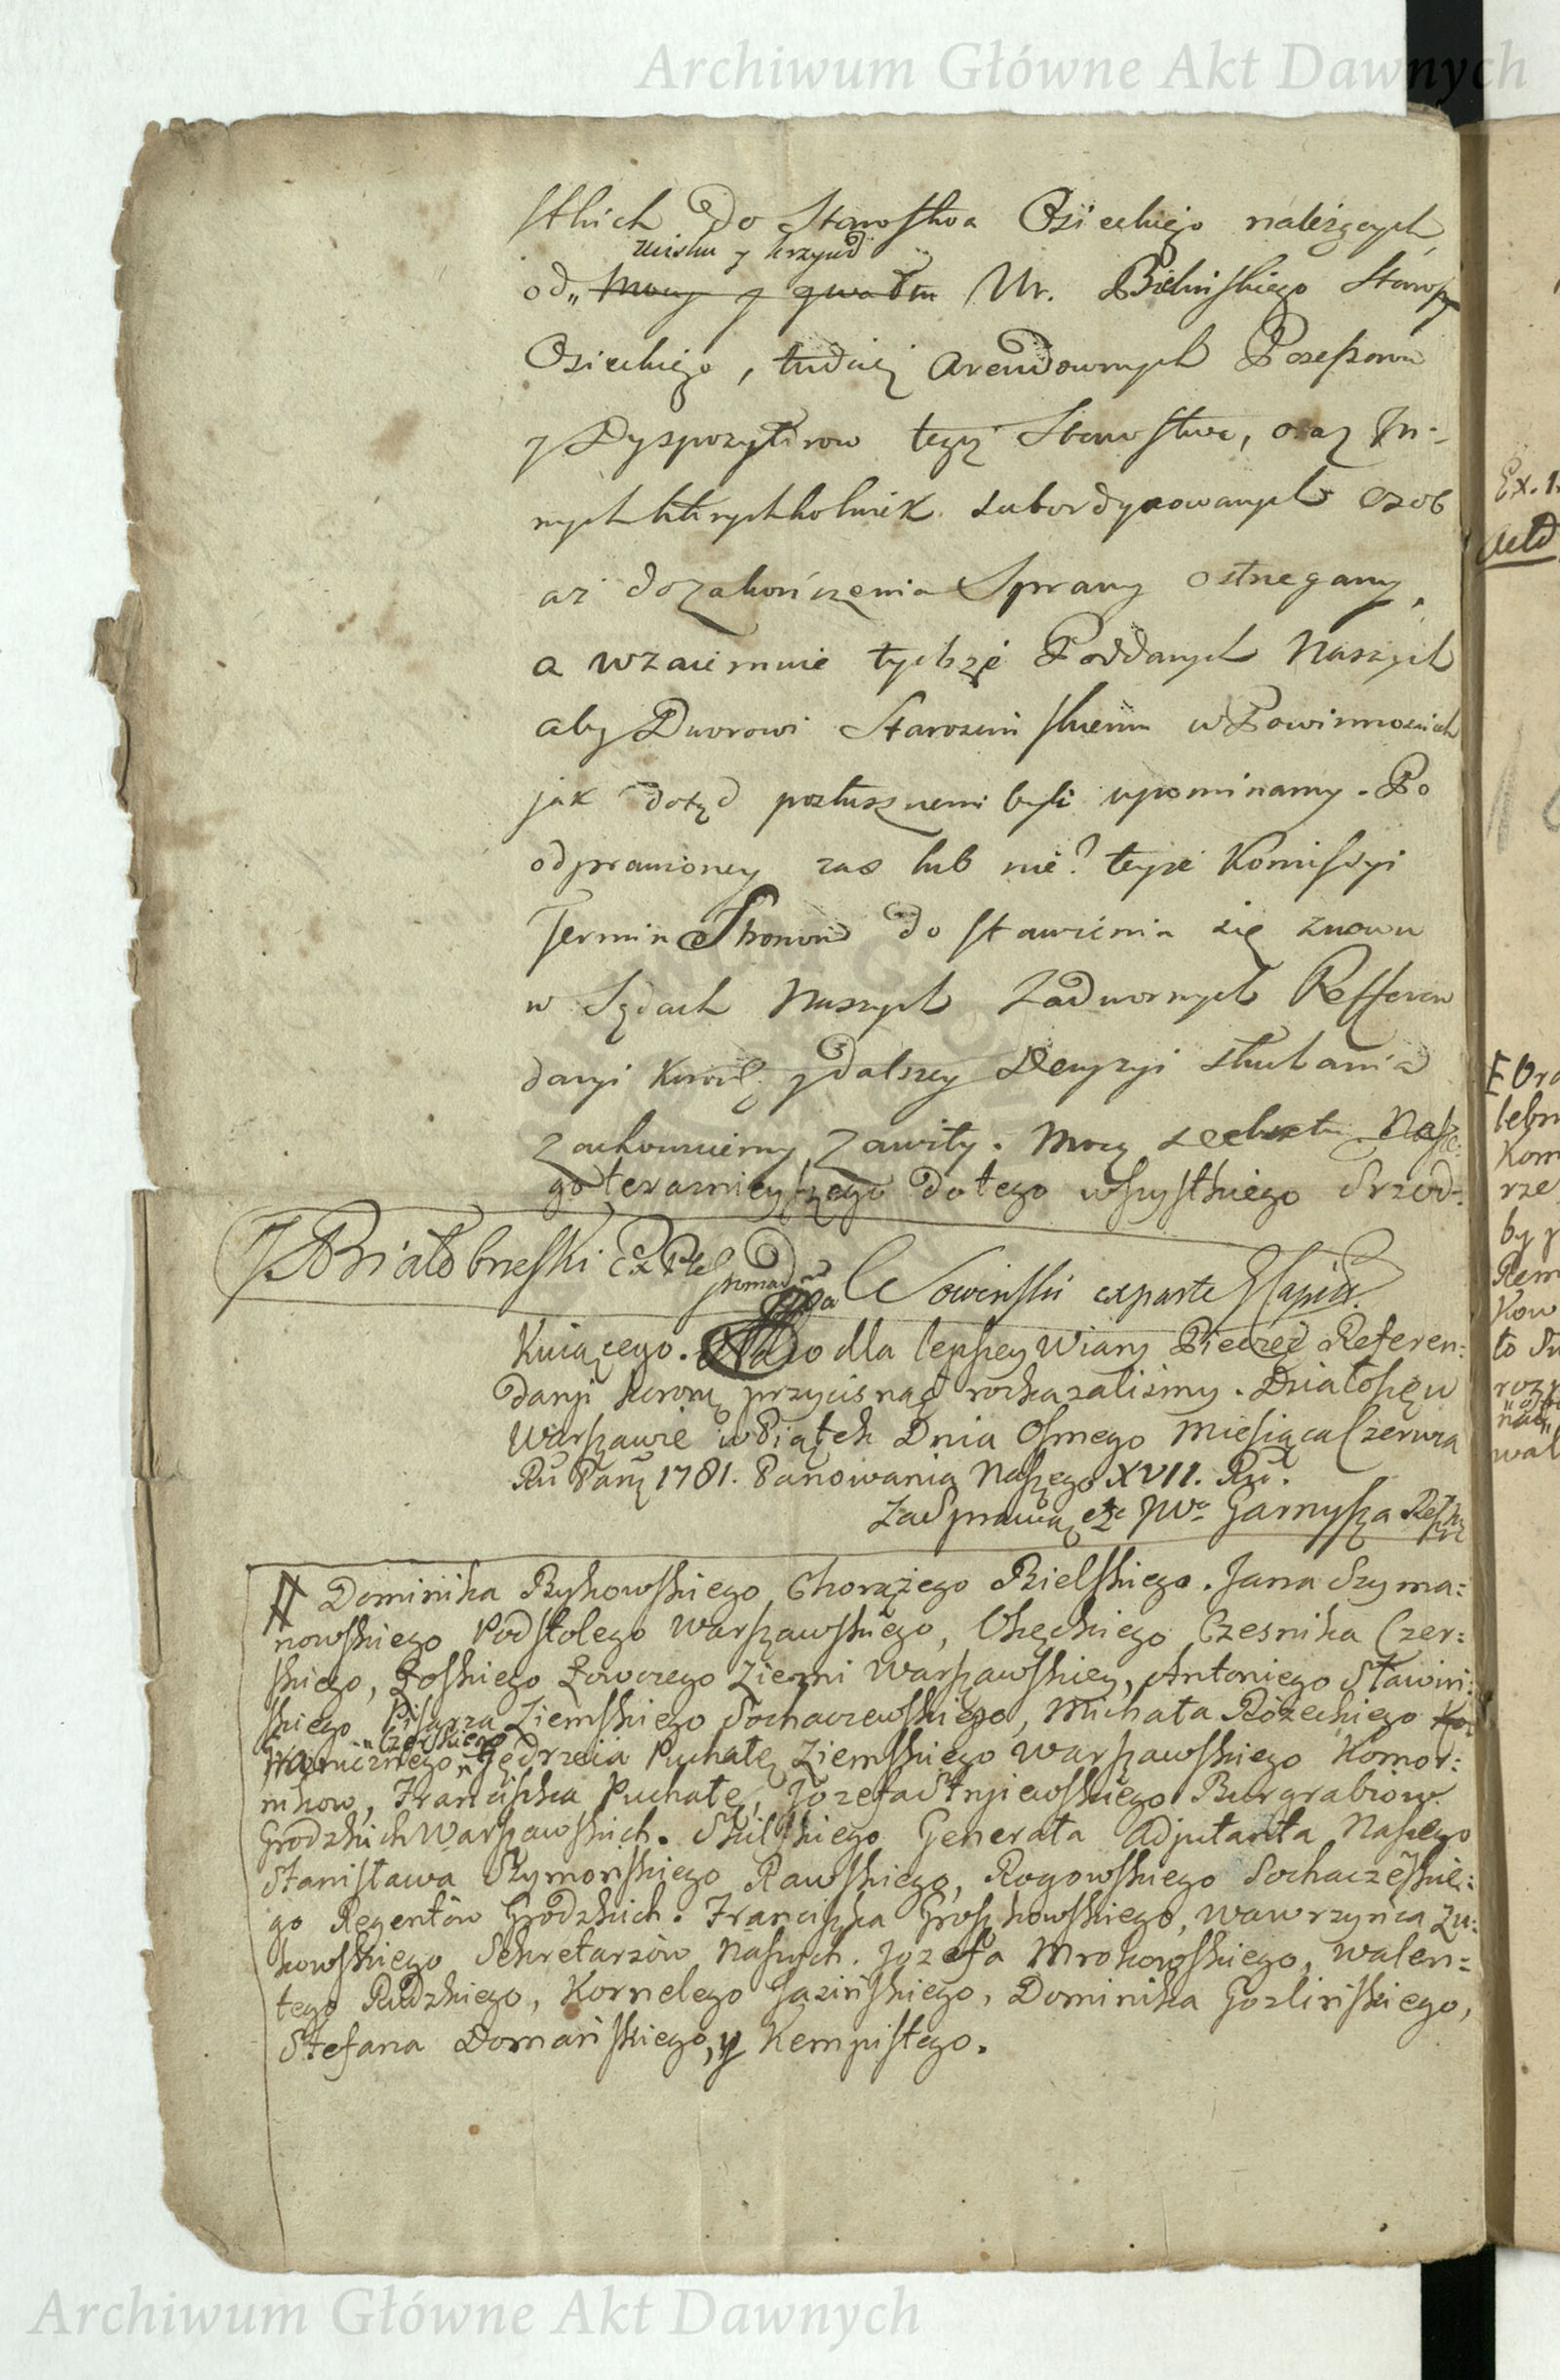 Archiwum Główne Akt Dawnych
stkich do Starostwa Osieckiego należących
ucisku y krzywd
od„ mocy y gwałtu Ur. Bielinskiego Starosty
Osieckiego, tudziez Arendownych Possessorow
y Dyspozytorow tegoż Starostwa, oraz In-
nych ktorychkolwiek subordynowanych Osob
aż do zakończenia Sprawy ostrzegamy,
a wzaiemnie tychże Poddanych Naszych
aby Dworowi Starościńskiemu w Powinnościach
jak dotąd posłusznemi byli upominamy. Po
odprawioney zas lub nie? teyże Komissyi
Termin Stronom do stawienia się znowu
w Sądach Naszych Zadwornych Refferen
daryi Koroń. y dalszey Decyzyi słuchania
zachowuiemy zawity. Mocą Dekretu Nasze:
go teraznieyszego do tego wszystkiego Srzod:
JBiałobrzeski Ex Pte Gromad
Sowinski ex parte
Kuiącego. Na co dla lepszey Wiary Pieczęć Referen:
daryi Korony przycisnąć roskazaliśmy. Działo się w
Warszawie w Piątek Dnia Osmego Miesiąca Czerwca
Ru Pań 1781. Panowania Naszego XVII. Ru.
Za Sprawą Garnysza
# Dominika Rykowskiego Chorążego Bielskiego. Jana Szyma:
nowskiego Podstolego Warszawskiego, Okęckiego Czesnika Czer:
skiego, Łoskiego Łowczego Ziemi Warszawskiey, Antoniego Sławin:
skiego Pisarza Ziemskiego Sochaczewskiego, Michała Rożeckiego
„Czerskiego
Granicznego „Jędrzeia Puchałę Ziemskiego Warszawskiego Komor:
nikow, Franciszka Puchałę, Jozefa Burgrabiow
Grodzkich Warszawskich. Skilskiego Generała Adjutanta Naszego
Stanisława Szymońskiego Rawskiego, Rogowskiego Sochaczewskie:
go Regentów Grodzkich. Franciszka Groszkowskiego, Wawrzyńca Zu:
kowskiego Sekretarzów Naszych. Jozefa Mrokowskiego, Walen:
tego Rudzkiego, Kornelego Jasińskiego, Dominika Gozlińskiego,
Stefana Domańskiego, y Kempistego.
Ex.
Kom
rze
by
Rem
Kow
wal
Archiwum Główne Akt Dawnych